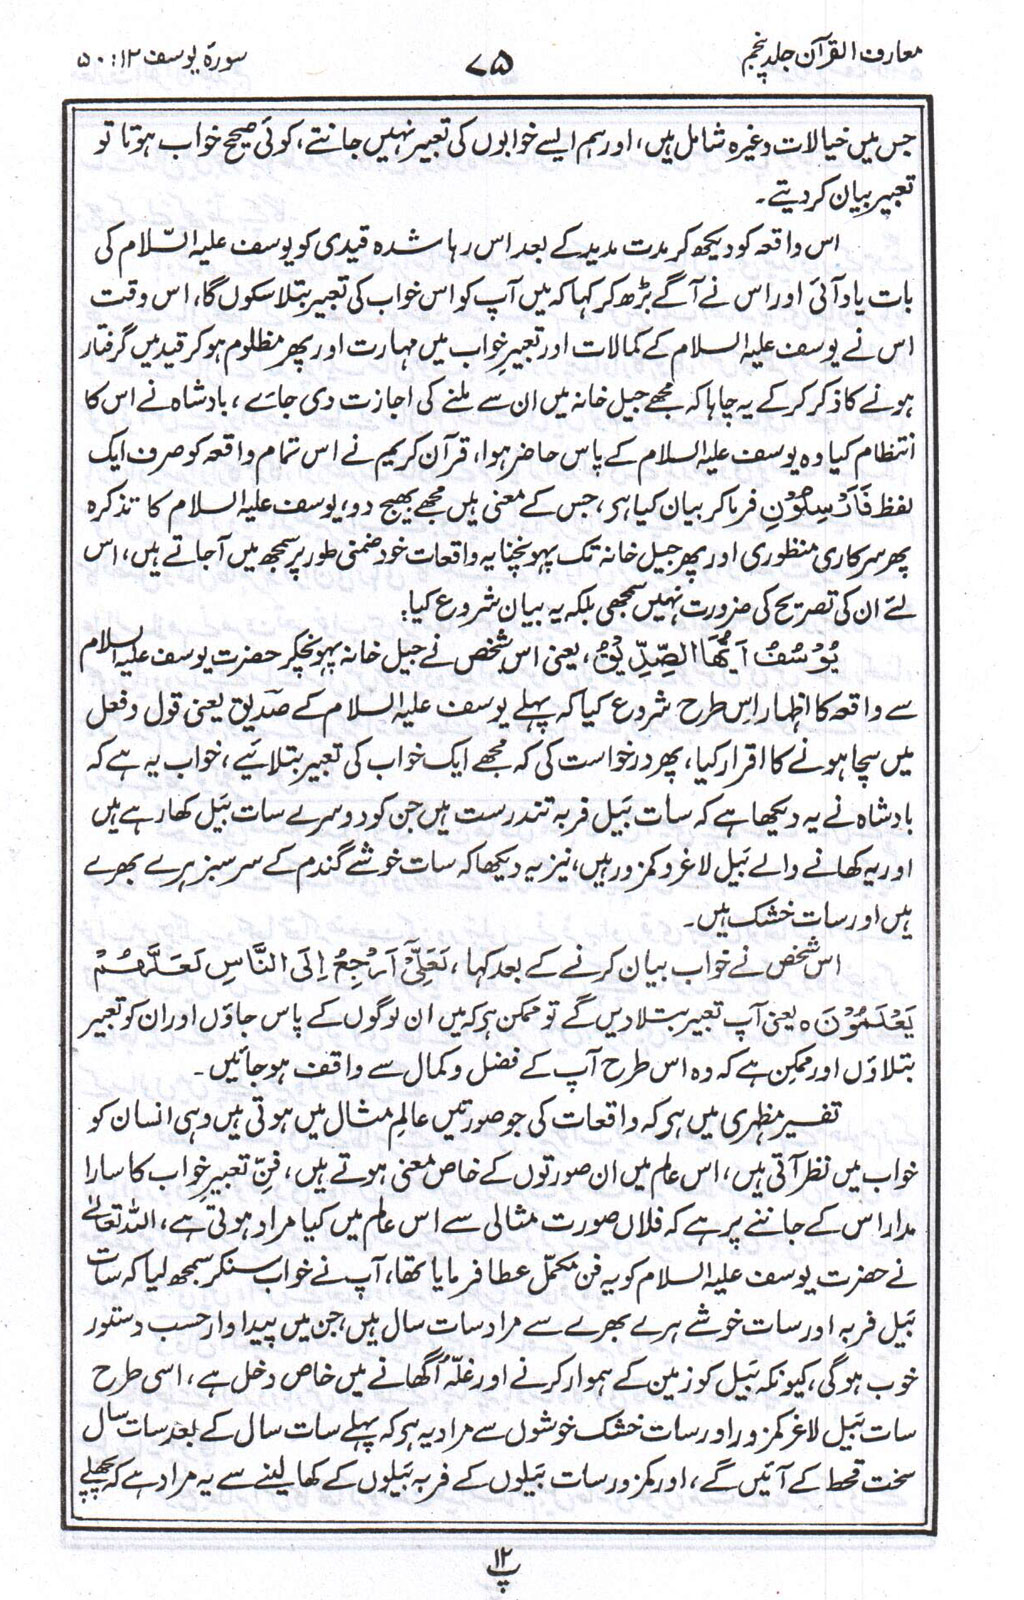 معارف القرآن جلد پنجم
۷۵
سورۂ یوسف ۱۲ : ۵۰
جس میں خیالات وغیرہ شامل ہیں، اور ہم ایسے خوابوں کی تعبیر نہیں جانتے، کوئی صحیح خواب ہوتا تو
تعبیر بیان کر دیتے۔
اس واقعہ کو دیکھ کر مدت مدید کے بعد اس رہا شدہ قیدی کو یوسف علیہ السّلام کی
بات یاد آئی اور اس نے آگے بڑھ کر کہا کہ میں آپ کو اس خواب کی تعبیر بتلا سکوں گا، اس وقت
اس نے یوسف علیہ السلام کے کمالات اور تعبیرِ خواب میں مہارت اور پھر مظلوم ہو کر قید میں گرفتار
ہونے کا ذکر کر کے یہ چاہا کہ مجھے جیل خانہ میں ان سے ملنے کی اجازت دی جائے، بادشاہ نے اس کا
انتظام کیا وہ یوسف علیہ السلام کے پاس حاضر ہوا، قرآن کریم نے اس تمام واقعہ کو صرف ایک
لفظ فَاَرْسِلُوْنِ فرما کر بیان کیا ہی، جس کے معنی ہیں مجھے بھیج دو، یوسف علیہ السلام کا تذکرہ
پھر سرکاری منظوری اور پھر جیل خانہ تک پہونچنا یہ واقعات خود ضمنی طور پر سمجھ میں آجاتے ہیں، اس
لئے ان کی تصریح کی ضرورت نہیں سمجھی بلکہ یہ بیان شروع کیا:
یُوْسُفُ اَیُّھَا الصِّدِّیْقُ، یعنی اس شخص نے جیل خانہ پہونچکر حضرت یوسف علیہ السلام
سے واقعہ کا اظہار اِس طرح شروع کیا کہ پہلے یوسف علیہ السلام کے صدّیق یعنی قول و فعل
میں سچا ہونے کا اقرار کیا، پھر درخواست کی کہ مجھے ایک خواب کی تعبیر بتلائیے، خواب یہ ہے کہ
بادشاہ نے یہ دیکھا ہے کہ سات بَیل فربہ تندرست ہیں جن کو دوسرے سات بَیل کھا رہے ہیں
اور یہ کھانے والے بَیل لاغر و کمزور ہیں، نیز یہ دیکھا کہ سات خوشے گندم کے سرسبز ہرے بھرے
ہیں اور سات خشک ہیں۔
اس شخص نے خواب بیان کرنے کے بعد کہا، لَعَلِّیْٓ اَرْجِعُ اِلَی النَّاسِ لَعَلَّھُمْ
یَعْلَمُوْنَ ہ یعنی آپ تعبیر بتلا دیں گے تو ممکن ہی کہ میں ان لوگوں کے پاس جاؤں اور ان کو تعبیر
بتلاؤں اور ممکن ہے کہ وہ اس طرح آپ کے فضل و کمال سے واقف ہو جائیں۔
تفسیر مظہری میں ہی کہ واقعات کی جو صورتیں عالمِ مثال میں ہوتی ہیں وہی انسان کو
خواب میں نظر آتی ہیں، اس عالم میں ان صورتوں کے خاص معنی ہوتے ہیں، فنِّ تعبیرِ خواب کا سارا
مدار اس کے جاننے پر ہے کہ فلاں صورت مثالی سے اس عالم میں کیا مراد ہوتی ہے، اللہ تعالیٰ
نے حضرت یوسف علیہ السلام کو یہ فن مکمّل عطا فرمایا تھا، آپ نے خواب سنکر سمجھ لیا کہ سات
بَیل فربہ اور سات خوشے ہرے بھرے سے مراد سات سال ہیں، جن میں پیداوار حسب دستور
خوب ہوگی، کیونکہ بَیل کو زمین کے ہموار کرنے اور غلّہ اُگھانے میں خاص دخل ہے، اسی طرح
سات بَیل لاغر کمزور اور سات خشک خوشوں سے مراد یہ ہی کہ پہلے سات سال کے بعد سات سال
سخت قحط کے آئیں گے، اور کمزور سات بَیلوں کے فربہ بَیلوں کے کھا لینے سے یہ مراد ہے کہ پچھلے
پ۱۲